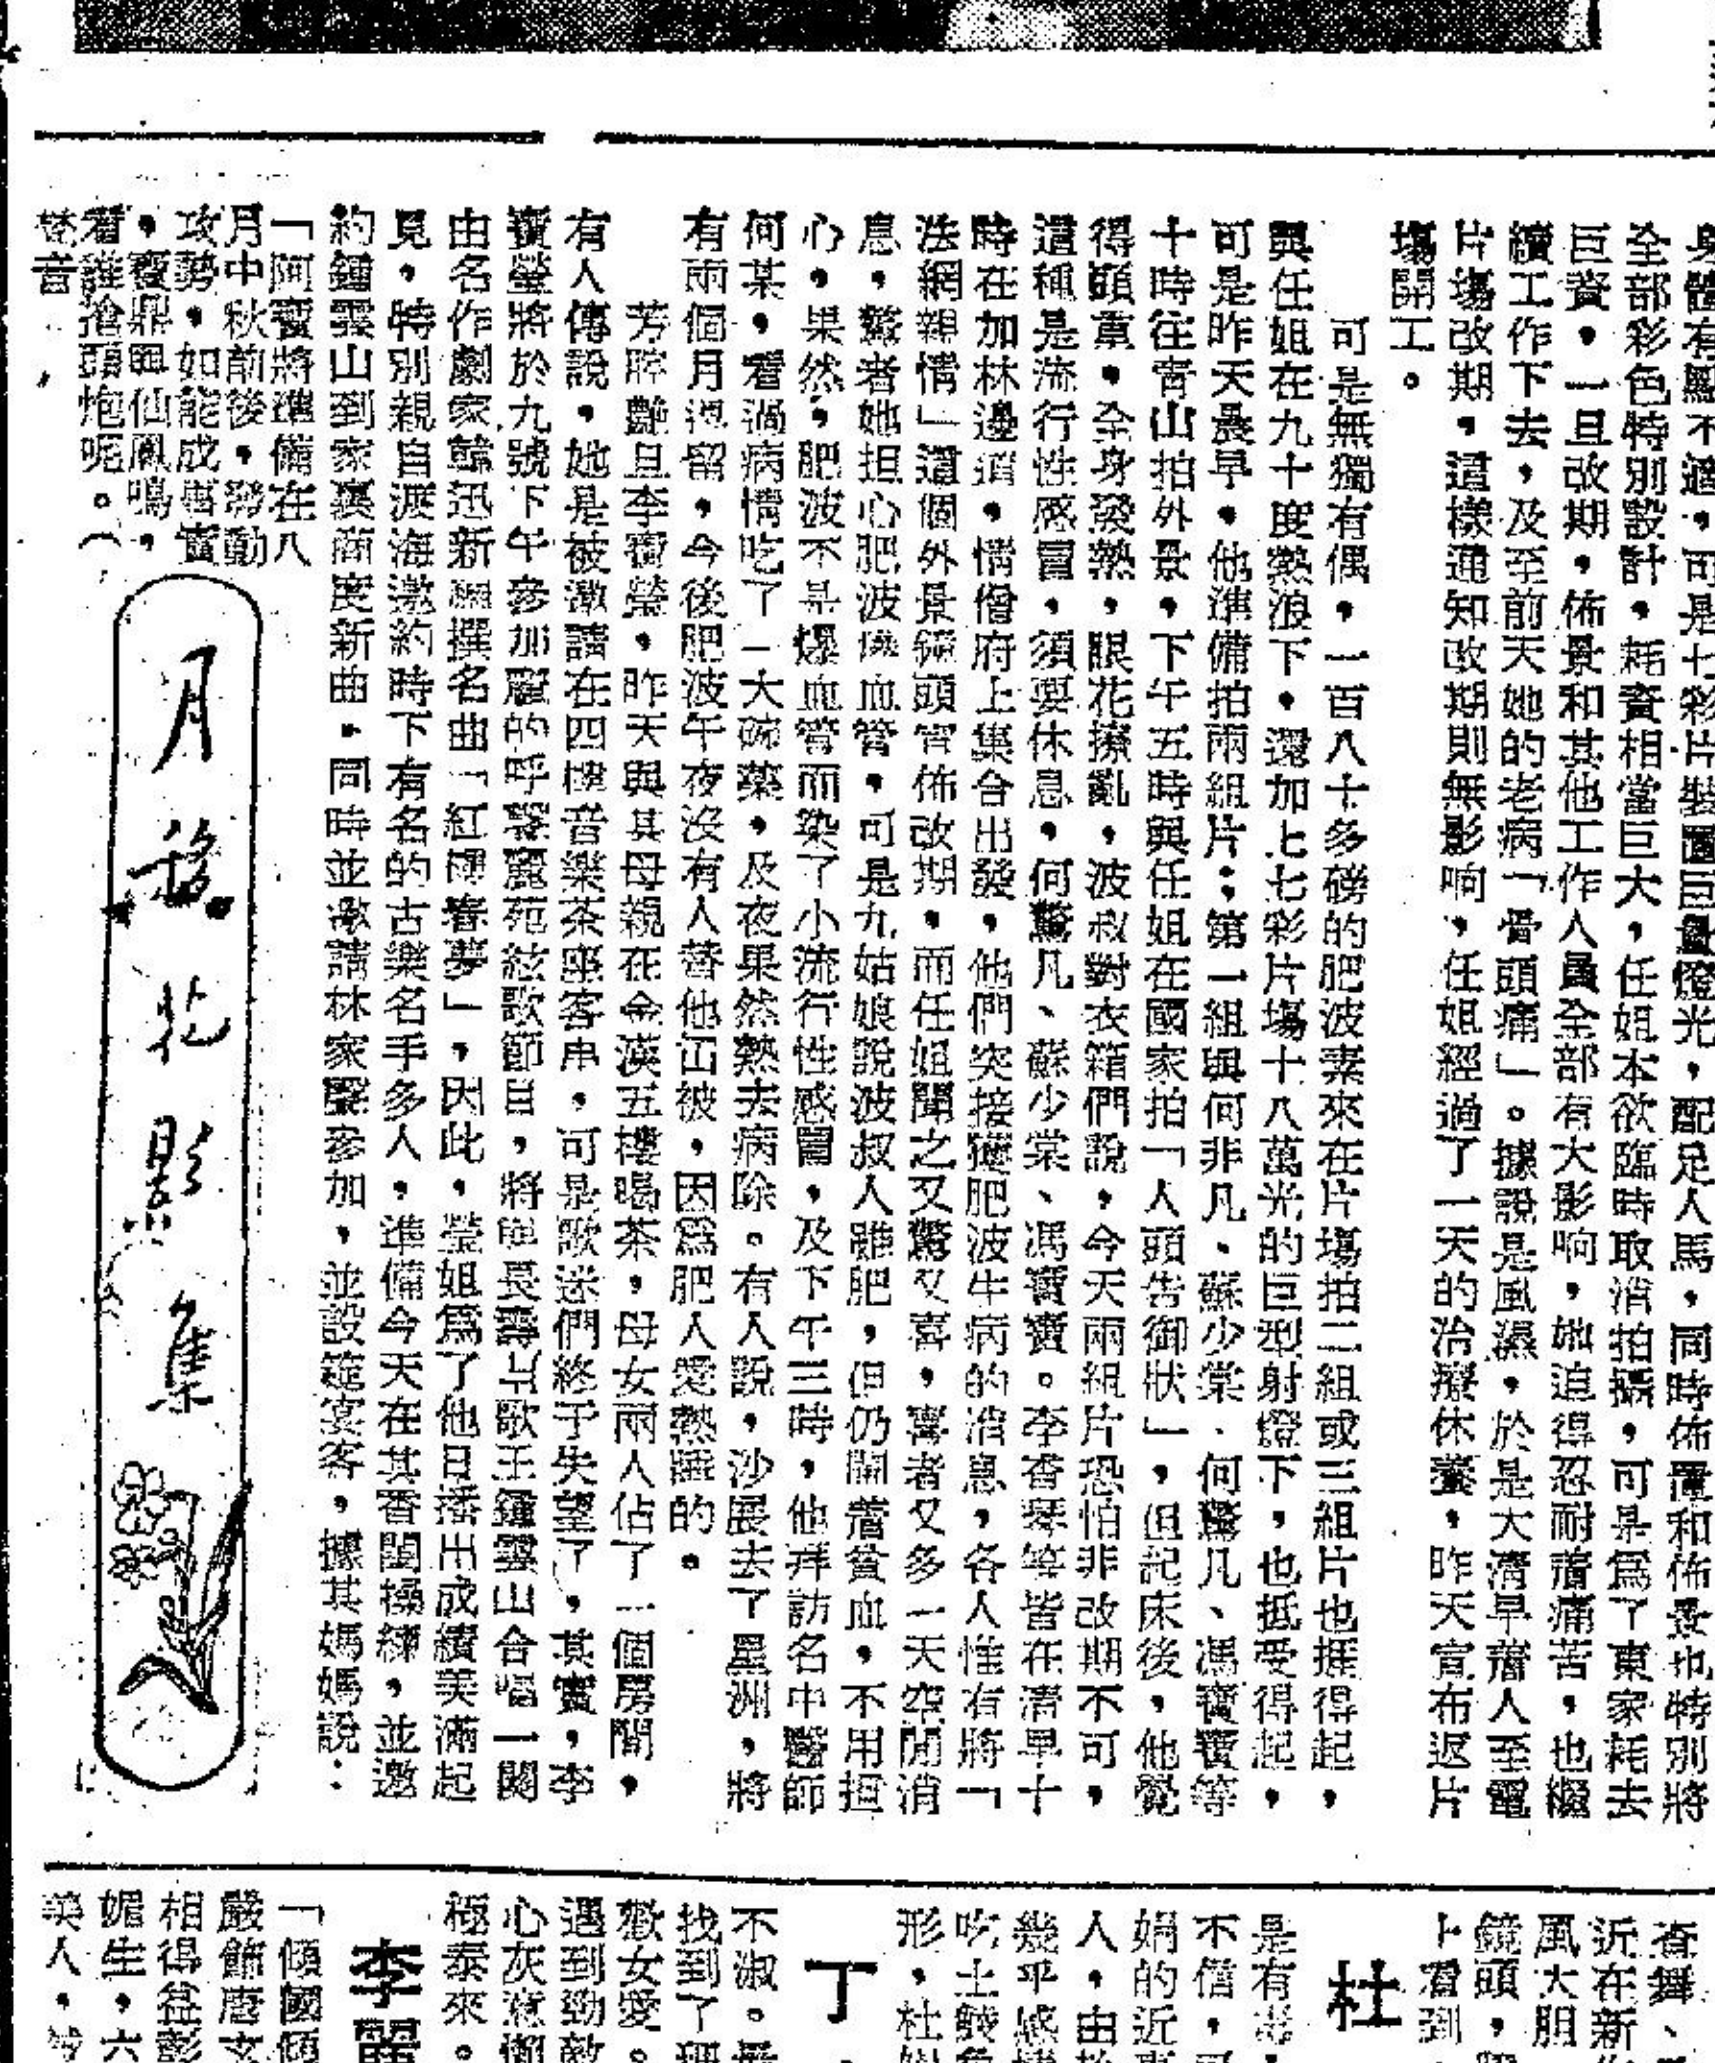 身體有點不適，可是七彩片裝置巨量燈光，配足人馬，同時佈置和佈景也特別將
全部彩色特別設計，耗資相當巨大，任姐本欲臨時取消拍攝，可是爲了東家耗去
巨資，一旦改期，佈景和其他工作人員全部有大影响，她迫得忍耐着痛苦，也繼
續工作下去，及至前天她的老病「骨頭痛」。據說是風濕，於是大清早着人至電
片塲改期，這樣通知改期則無影响，任姐經過了一天的治療休養，昨天宣布返片
塲開工。
可是無獨有偶，一百八十多磅的肥波素來在片塲拍二組或三組片也捱得起，
與任姐在九十度熱浪下，還加上七彩片塲十八萬光的巨型射燈下，也抵受得起，
可是昨天晨早，他準備拍兩組片；第一組與何非凡、蘇少棠、何驚凡、馮寶寶等
十時往青山拍外景，下午五時與任姐在國家拍「人頭告御狀」，但起床後，他覺
得頭重，全身發熱，眼花撩亂，波叔對衣箱們說，今天兩組片恐怕非改期不可，
這種是流行性感冒，須要休息，何驚凡、蘇少棠、馮寶寶。李香琴等皆在清早十
時在加林邊道，情僧府上集合出發，他們突接獲肥波生病的消息，各人惟有將「
法網親情」這個外景鏡頭宣佈改期，而任姐聞之又驚又喜，喜者又多一天空閒消
息，驚者她担心肥波爆血管，可是九姑娘說波叔人雖肥，但仍鬧着貧血，不用担
心，果然，肥波不是爆血管而染了小流行性感冒，及下午三時，他拜訪名中醫師
何某，看過病情吃了一大碗藥，及夜果然熱去病除。有人說，沙展去了星洲，將
有兩個月逗留，今後肥波午夜沒有人替他冚被，因爲肥人愛熱睡的。
芳腔艷旦李寶瑩，昨天與其母親在金漢五樓喝茶，母女兩人佔了一個房間，
有人傳說，她是被邀請在四樓音樂茶座客串，可是歌迷們終于失望了，其實，李
寶瑩將於九號下午參加麗的呼聲麗苑絃歌節目，將與長壽歌王鍾雲山合唱一闋
由名作劇家韓迅新編撰名曲「紅樓春夢」，因此，瑩姐爲了他日播出成績美滿起
見，特別親自渡海邀約時下有名的古樂名手多人，準備今天在其香閨操練，並邀
約鍾雲山到家裏商度新曲，同時並邀請林家聲參加，並設筵宴客，據其媽媽說：
「阿寶將準備在八
月中秋前後，發動
攻勢，如能成事實
，寶鼎與仙鳳鳴，
看誰搶頭炮呢。（
梵音
月移花影集
杏舞、
近在新
風大胆
鏡頭，
上看到
杜
是有
不信，可
娟的近
人，由
幾乎感
吃土鯪魚
形，杜
丁
不淑。
找到了理
歡女愛。
遇到勁敵
心灰意懶
極泰來。
李麗
「傾國傾
嚴節唐
相得益彰
媚生，六
美人，